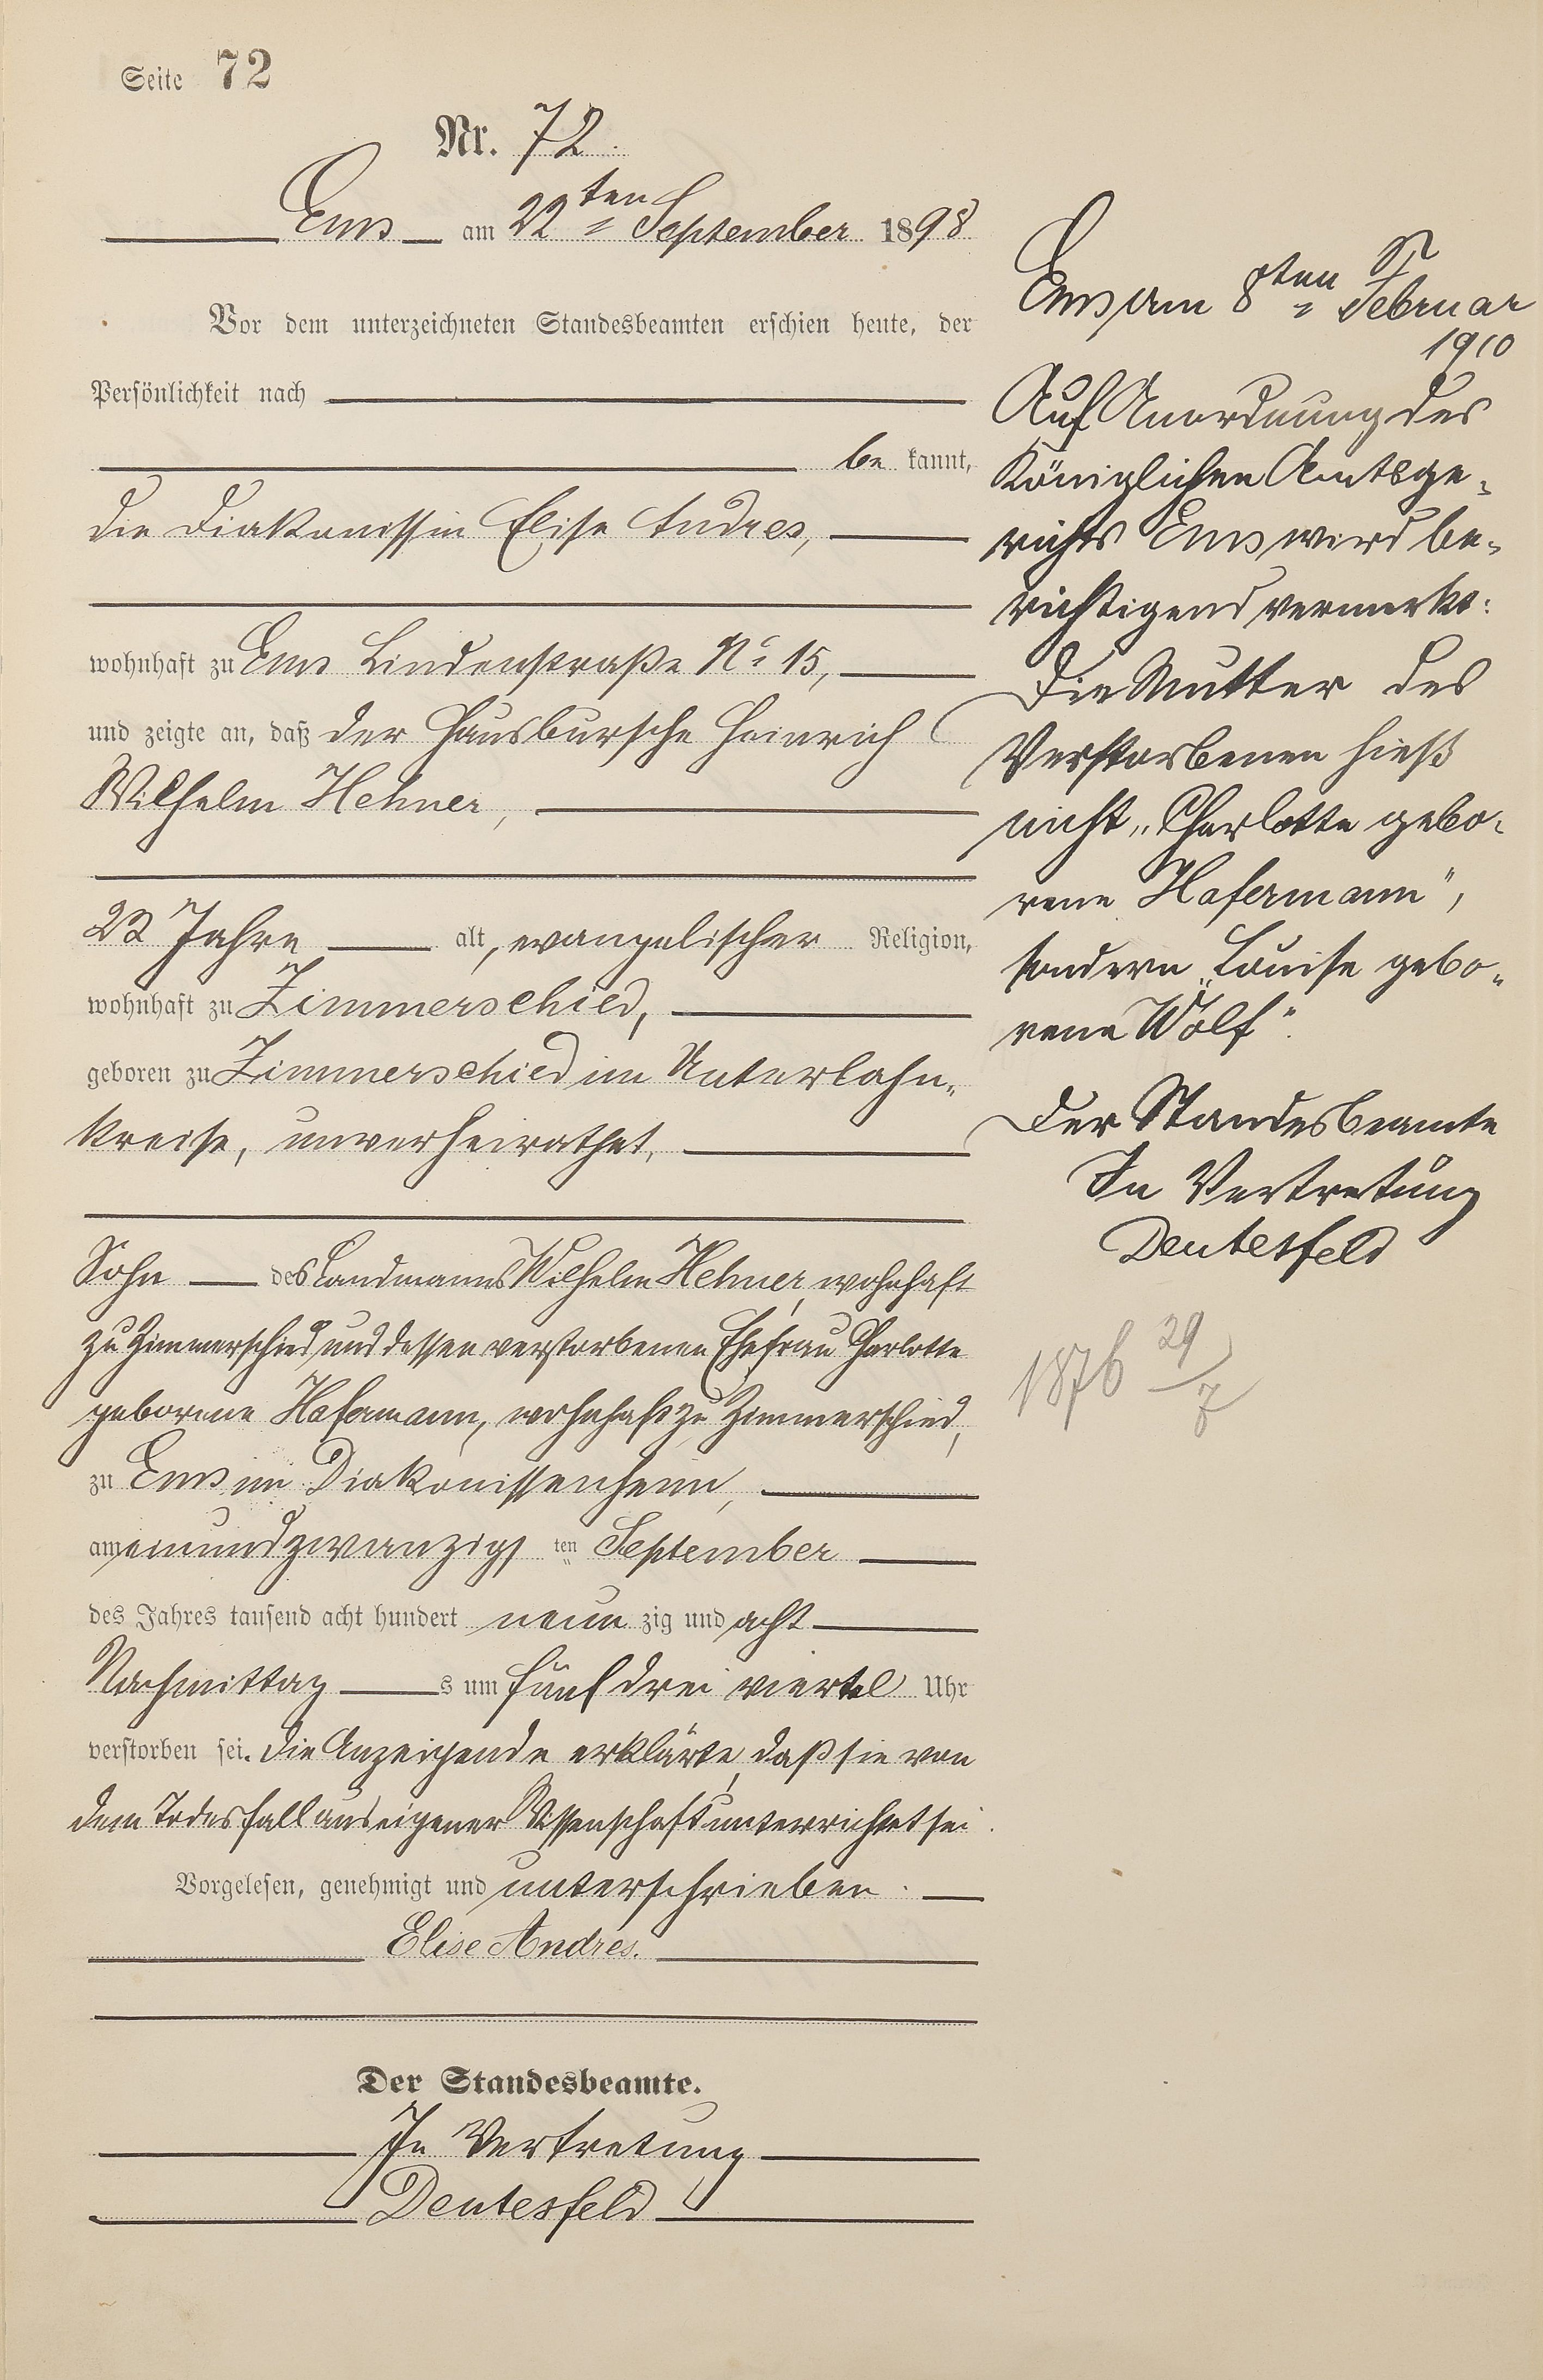 Seite 72
Nr. 72.
Ems am 22ten September 1898
Vor dem unterzeichneten Standesbeamten erschien heute, der
Persönlichkeit nach
be kannt,
die Diakonissin Elise Andres,
wohnhaft zu Ems Lindenstraße No 15,
und zeigte an, daß der Hausbursche Heinrich
Wilhelm Hehner,
22 Jahre alt, evangelischer Religion,
wohnhaft zu Zimmerschied,
geboren zu Zimmerschied im Unterlahn-
kreise, unverheirathet,
Sohn des Landmanns Wilhelm Hehner, wohnhaft
zu Zimmerschied und dessen verstorbenen Ehefrau Charlotte
geborene Hafermann, wohnhaft zu Zimmerschied,
zu Ems im Diakonissenheim,
am einundzwanzigs ten September
des Jahres tausend acht hundert neun zig und acht
Nachmittag s um fünf drei viertel Uhr
verstorben sei. Die Anzeigende erklärte, daß sie von
dem Todesfall aus eigener Wissenschaft unterrichtet sei.
Vorgelesen, genehmigt und unterschrieben.
Elise Andres.
Der Standesbeamte.
In Vertretung
Deutesfeld
Ems am 8ten Februar
1910
Auf Anordnung des
Königlichen Amtsge-
richts Ems wird be-
richtigend vermerkt:
Die Mutter des
Verstorbenen hieß
nicht „Charlotte gebo-
rene Hafermann",
sondern „Louise gebo-
rene Wolf".
Der Standesbeamte
In Vertretung
Deutesfeld
1876 29/7